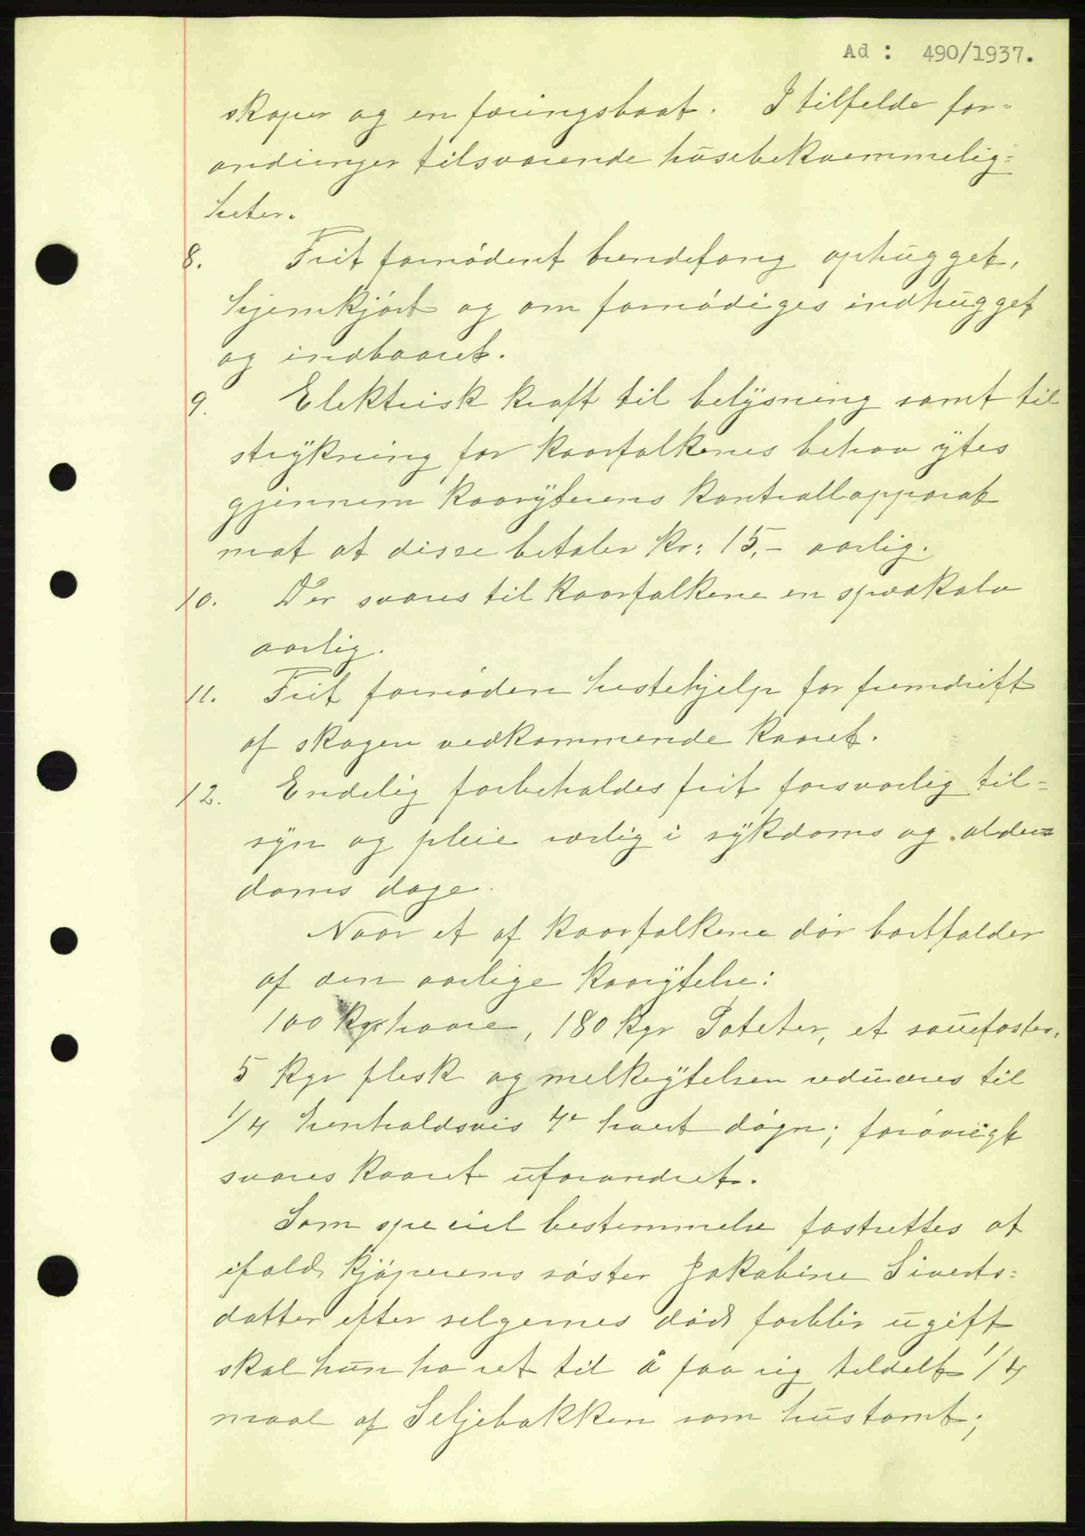 Ad : 490/1937.
skaper og en færingsbaat. I tilfelde for-
andringer tilsvarende husebekvæmmelig-
heter.
8. Frit fornødent brendefang ophugget,
hjemkjørt og om fornødiges indhugget
og indbaaret.
9. Elektrisk kraft til belysning samt til
strykning for kaarfolkenes behov ytes
gjennem kaaryterens kontrollapparat
mot at disse betaler kr: 15,- aarlig.
10. Der svares til kaarfolkene en spædkalv
aarlig.
11. Frit fornøden hestehjelp for fremdrift
af skogen vedkommende kaaret.
12. Endelig forbeholdes frit forsvarlig til-
syn og pleie særlig i sykdoms og alder-
doms dage.
Naar et af kaarfolkene dør bortfalder
af den aarlige kaarytelse:
100 kgr havre, 180 kgr Poteter, et sauefoster,
5 kgr flesk og melkeytelsen reduceres til
1/4 henholdsvis hvert døgn; forøvrigt
svares kaaret uforandret.
Som speciel bestemmelse fastsettes at
ifald kjøperens søster Jakobine Siverts-
datter efter selgernes død forblir ugift
skal hun ha ret til å faa sig tildelt 1/4
maal af Seljebakken som hustomt;